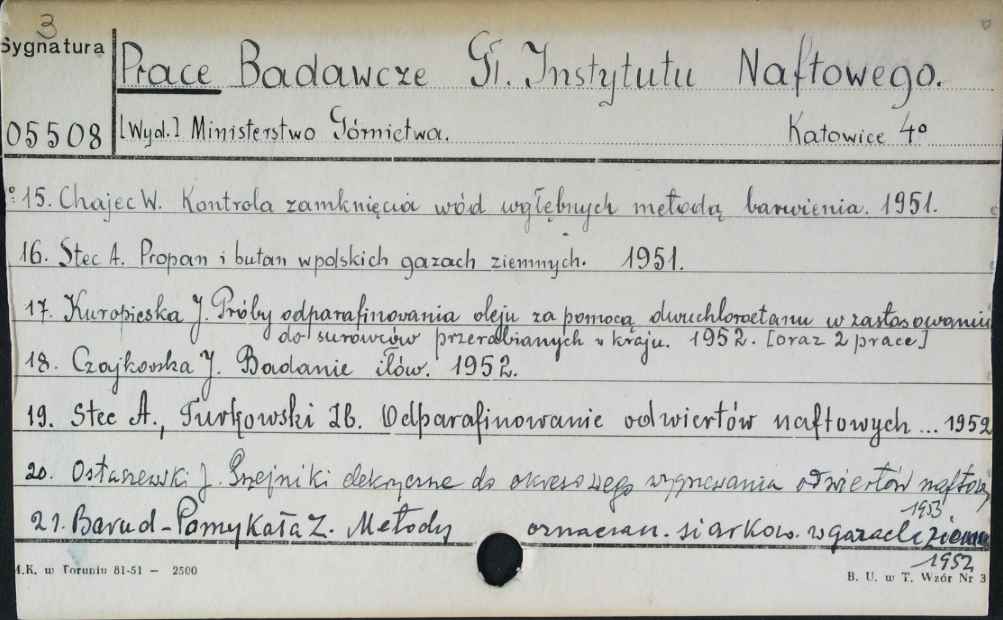 3
Sygnatura
Prace Badawcze Gł. Instytutu Naftowego.
05508
[Wyd.] Ministerstwo Górnictwa. Katowice 4°
15. Chajec W. Kontrola zamknięcia wód wgłębnych metodą barwienia. 1951.
16. Stec A. Propan i butan w polskich gazach ziemnych. 1951.
17. Kuropieska J. Próby odparafinowania oleju za pomocą dwuchloroetanu w zastosowaniu
do surowców przerabianych w kraju. 1952. [oraz 2 prace]
18. Czajkowska J. Badanie iłów. 1952.
19. Stec A., Turkowski Zb. Odparafinowanie odwiertów naftowych ... 1952
20. Ostaszewski J. Grzejniki elektryczne do okresowego wygrzewania odwiertów naftow.
1953.
21. Barud-Pomykała Z. Metody oznaczan. siarkow. w gazach ziemn
1952
M.K. w Toruniu 81-51 — 2500
B. U. w T. Wzór Nr 3